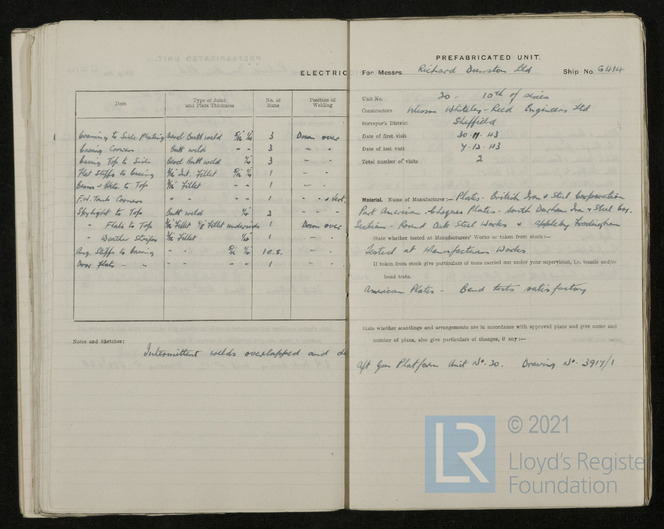 ELECTRIC
Item
Type of Joint
and Plate Thickness
No. of
Runs
Position of
Welding
Coaming to Side Plating Bevel Butt weld 3 Down over
Casing Corners Butt weld - - 3 - -
Casing Top to Side Bevel Butt weld 3 - -
Flat Stiffs to Casing Int. Fillet 1 - -
to Top Fillet - - 1 - -
F.W. Tank Corners - - - - 1 - & Vert.
Skylight to Top Butt weld 2 - -
" Flats to Top Fillet underside 1 Down over
" Weather Strips Fillet 1 - -
Ang. Stiffs to Casing - - 10.S. - -
Door flats - - - - 1 - -
Notes and Sketches:
Intermittent welds overlapped and
PREFABRICATED UNIT.
For Messrs. Richard Dunston Ltd Ship No. G414
Unit No. 30 - 10th of series
Constructors Whiteley-Read Engineers Ltd
Surveyor's District Sheffield
Date of first visit 30.11.43
Date of last visit 7.12.43
Total number of visits 2
Material. Name of Manufacturer:— Plates - British Iron & Steel Corporation
Part American Plates - South Durham Iron & Steel Coy.
Sections - Round Oak Steel Works & Appleby Frodingham
State whether tested at Manufacturers' Works or taken from stock:—
Tested at Manufacturers Works
If taken from stock give particulars of tests carried out under your supervision, i.e. tensile and/or
bend tests.
American Plates - Bend tests satisfactory
State whether scantlings and arrangements are in accordance with approved plans and give name and
number of plans, also give particulars of changes, if any:—
Aft Gun Platform Unit No. 30. Drawing No. 3917/1
© 2021
LR
Lloyd's Registe
Foundation